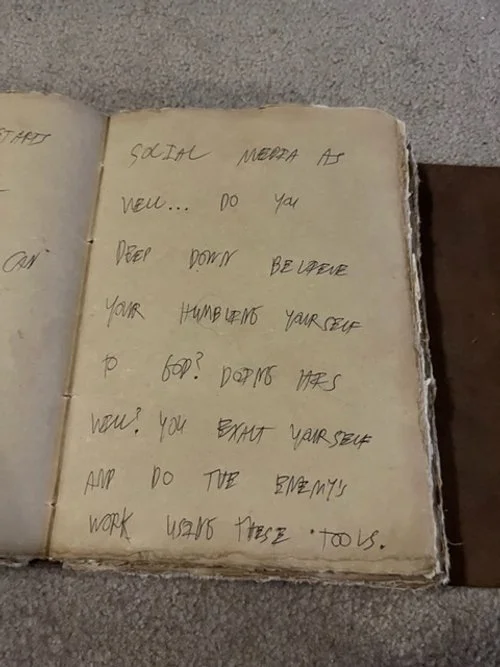 STARTS
CAN
SOCIAL MEDIA AS
WELL... DO YOU
DEEP DOWN BELIEVE
YOUR HUMBLING YOURSELF
TO GOD? DOING HIS
WILL? YOU EXALT YOURSELF
AND DO THE ENEMY'S
WORK USING THESE TOOLS.